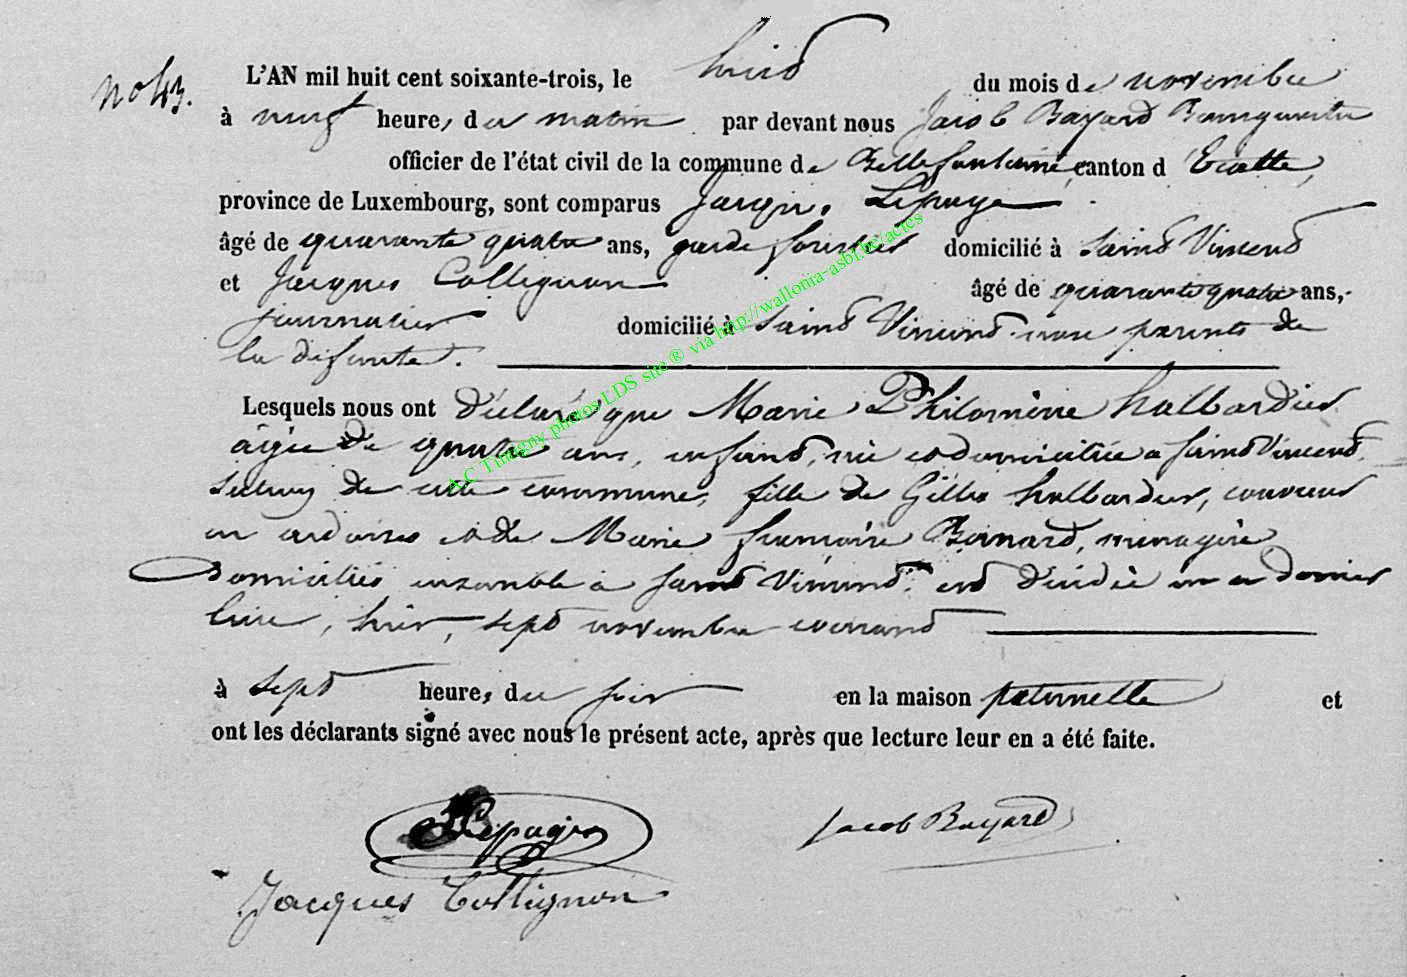 no 43.
L'AN mil huit cent soixante-trois, le huid du mois de novembre
à neuf heures du matin par devant nous Jacob Bayard Bourgmestre
officier de l'état civil de la commune de Bellefontaine, canton d'Etalle,
province de Luxembourg, sont comparus Jacques Lepage
âgé de quarante quatre ans, garde forestier domicilié à Saind Vincend
et Jacques Collignon âgé de quarante quatre ans,
journalier domicilié à Saind Vincend non parents de
la défunte.
Lesquels nous ont déclaré que Marie Philomène Halbardier
âgée de quatre ans, enfand, née et domiciliée a Saind Vincend,
section de cette commune, fille de Gilles Halbardier, couvreur
en ardoises et de Marie Françoise Bernard, ménagère
domiciliés ensemble à Saind Vincend, est décédée en ce dernier
lieu, hier, sept novembre courand
à sept heures du soir en la maison paternelle et
ont les déclarants signé avec nous le présent acte, après que lecture leur en a été faite.
Lepage Jacob Bayard
Jacques Collignon
A.C Tintigny photos LDS site ® via http://wallonia-asbl.be/actes